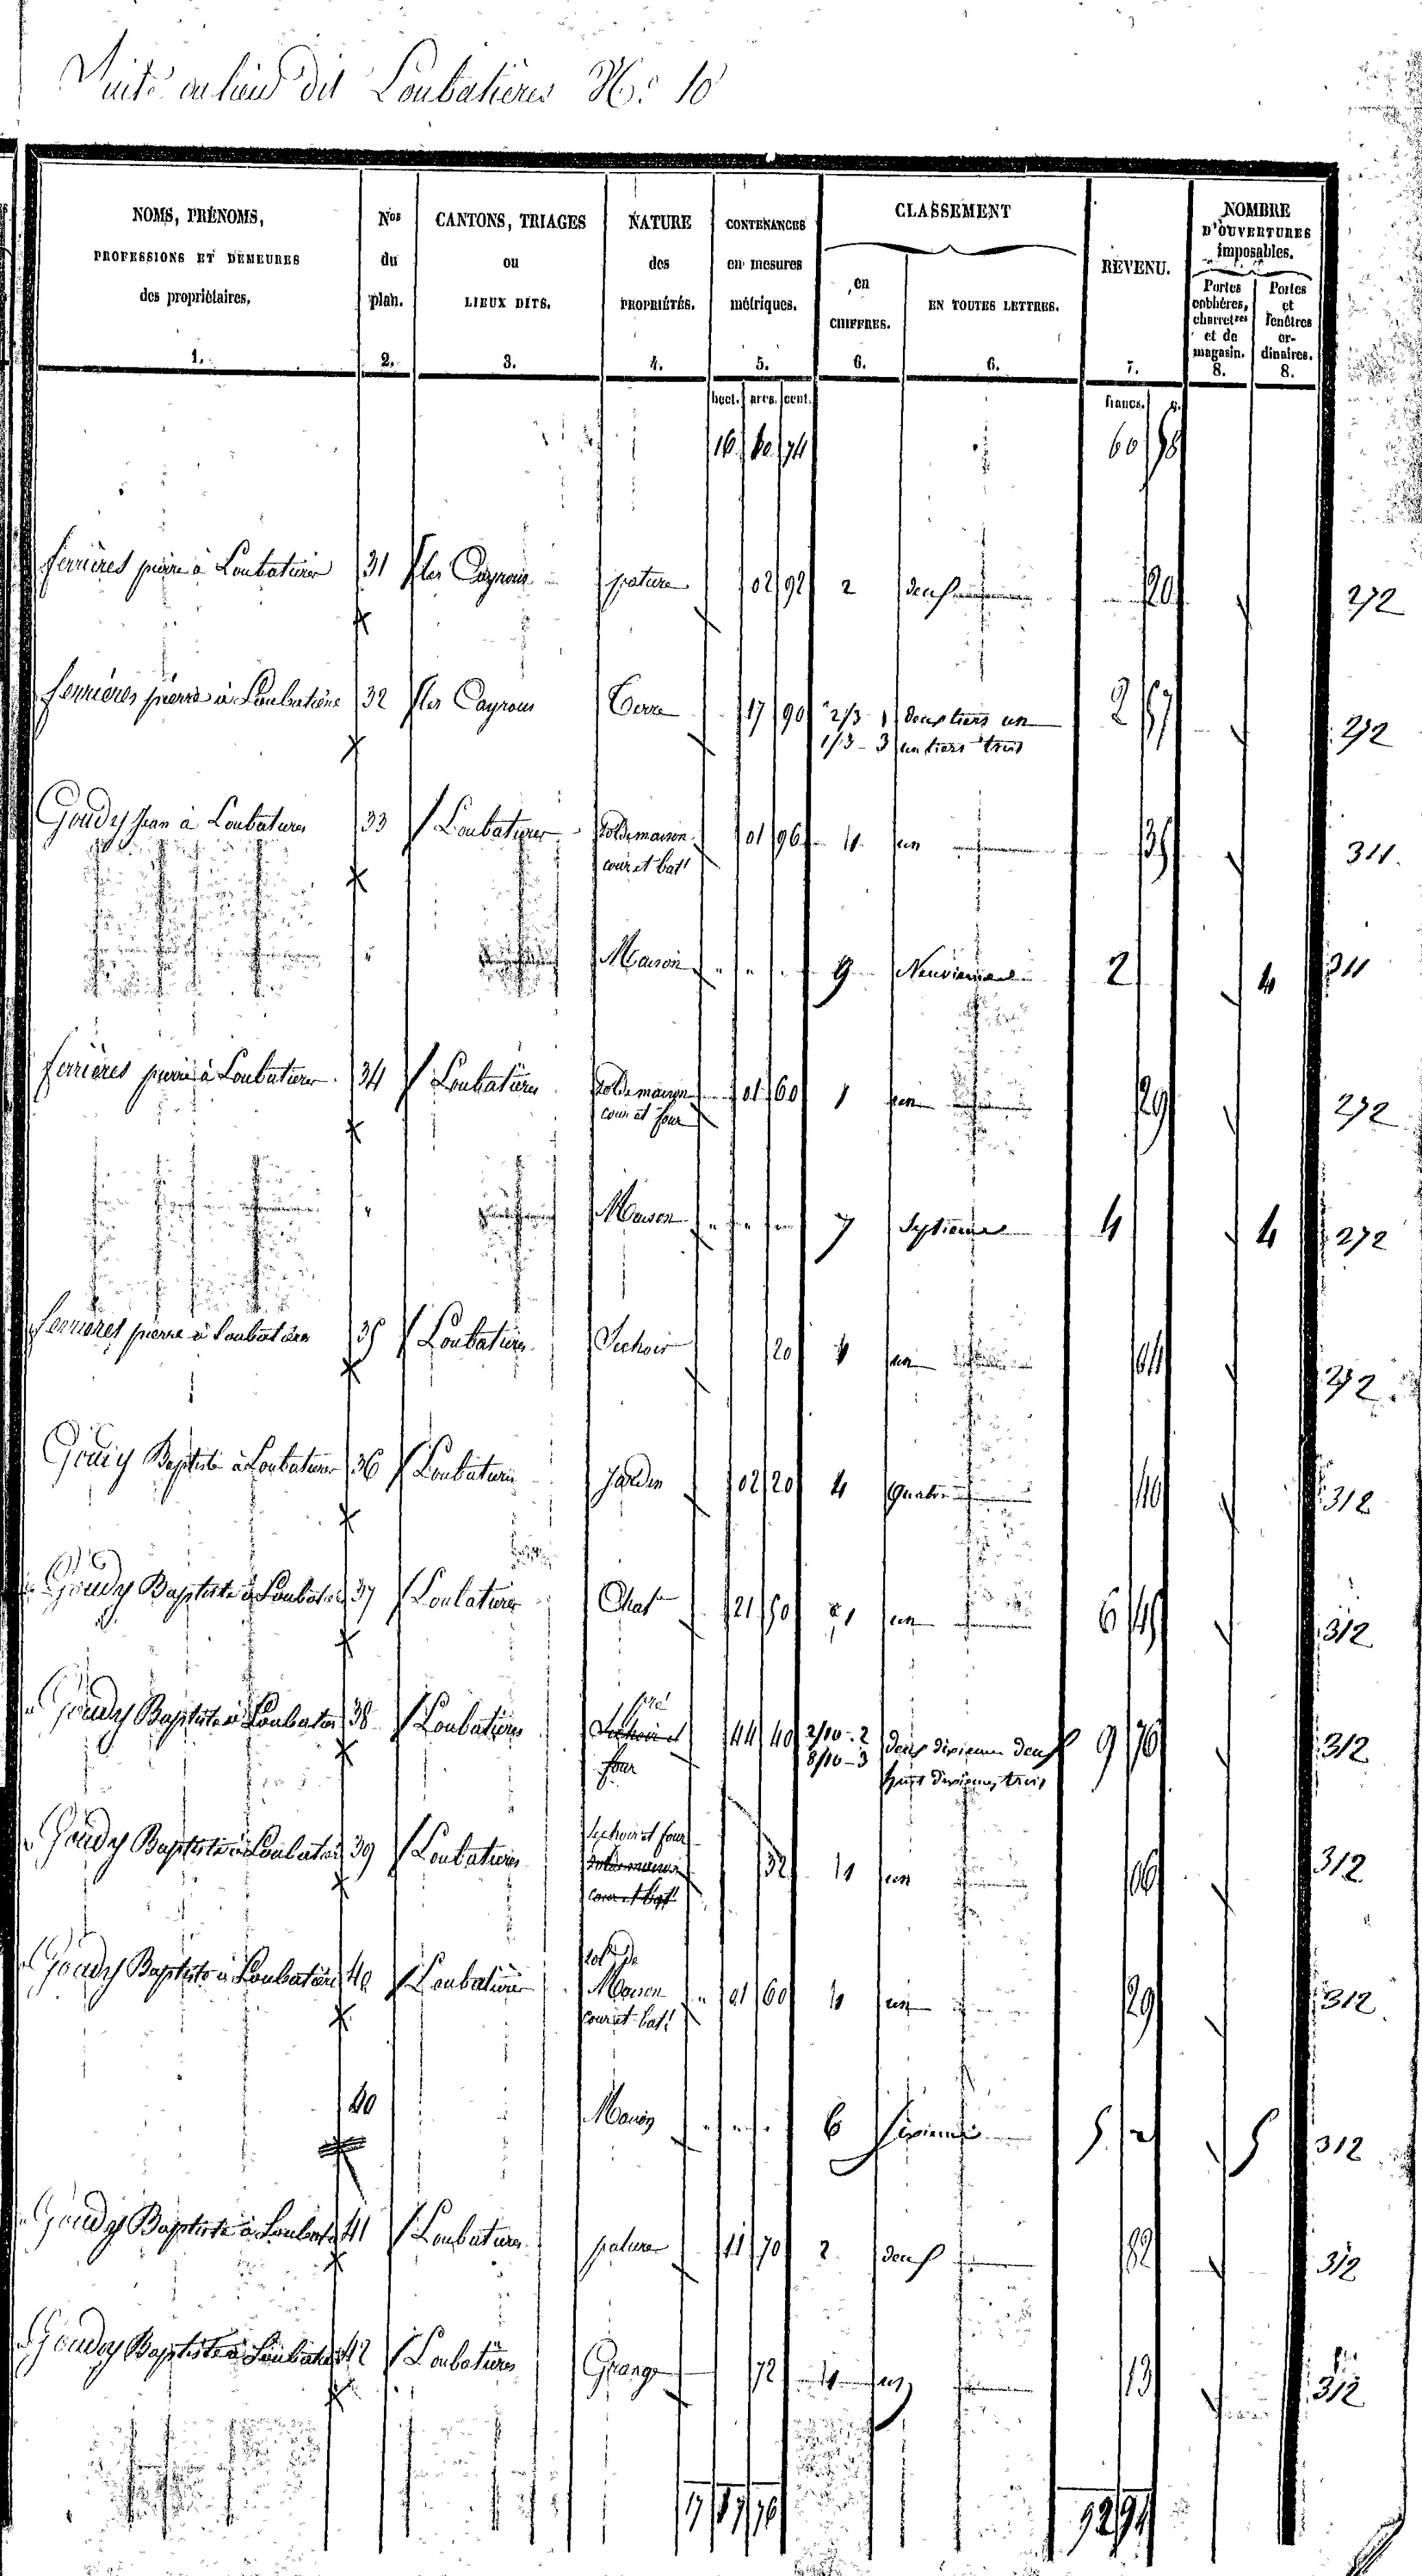 Suite au lieu dit Loubatières N.o 10
NOMS, PRÉNOMS, PROFESSIONS ET DEMEURES des propriétaires. 1.
Nos du plan. 2.
CANTONS, TRIAGES ou LIEUX DITS. 3.
NATURE des PROPRIÉTÉS. 4.
CONTENANCES en mesures métriques. 5.
CLASSEMENT
en CHIFFRES. 6.
EN TOUTES LETTRES. 6.
REVENU. 7.
NOMBRE D'OUVERTURES imposables.
Portes cochères, charretres et de magasin. 8.
Portes et fenêtres ordinaires. 8.
hect. ares. cent. francs. c.
16 60
ferrières pierre à Loubatieres 31 les Cayrous pature 02 92 2 deux 20 272
ferrières pierre à Loubatiere 32 les Cayrous Terre 17 90 2/3 - 1 deux tiers un 2 57 272
1/3 - 3 un tiers trois
Goudy Jean à Loubatieres 33 Loubatieres Sol de maison 01 96 1 un 35 311
cour et batt
Maison 9 Neuvieme 2 4 311
ferrières pierre à Loubatieres 34 Loubatieres Sol de maison 01 60 1 un 29 272
cour et four
Maison 7 Septieme 4 4 272
ferrières pierre à Loubatieres 35 Loubatieres Sechoir 20 1 un 04 272
Goudy Baptiste à Loubatieres 36 Loubatieres Jardin 02 20 4 Quatre 40 312
Goudy Baptiste à Loubatieres 37 Loubatieres Chat 21 50 1 un 6 45 312
pré
Goudy Baptiste à Loubatieres 38 Loubatieres Sechoir et 44 40 2/10 - 2 deux dixiemes deux 9 76 312
four 8/10 - 3 huit dixiemes trois
Sechoir et four
Goudy Baptiste à Loubatieres 39 Loubatieres Sol de maison 32 1 un 06 312
cour et batt
sol de
Goudy Baptiste à Loubatieres 40 Loubatieres Maison 01 60 1 un 29 312
cour et bat
40 Maison 6 Sixieme 5 5 312
Goudy Baptiste à Loubat 41 Loubatieres pature 11 70 2 deux 82 312
Goudy Baptiste à Loubatieres 42 Loubatieres Grange 72 1 un 13 312
92 94